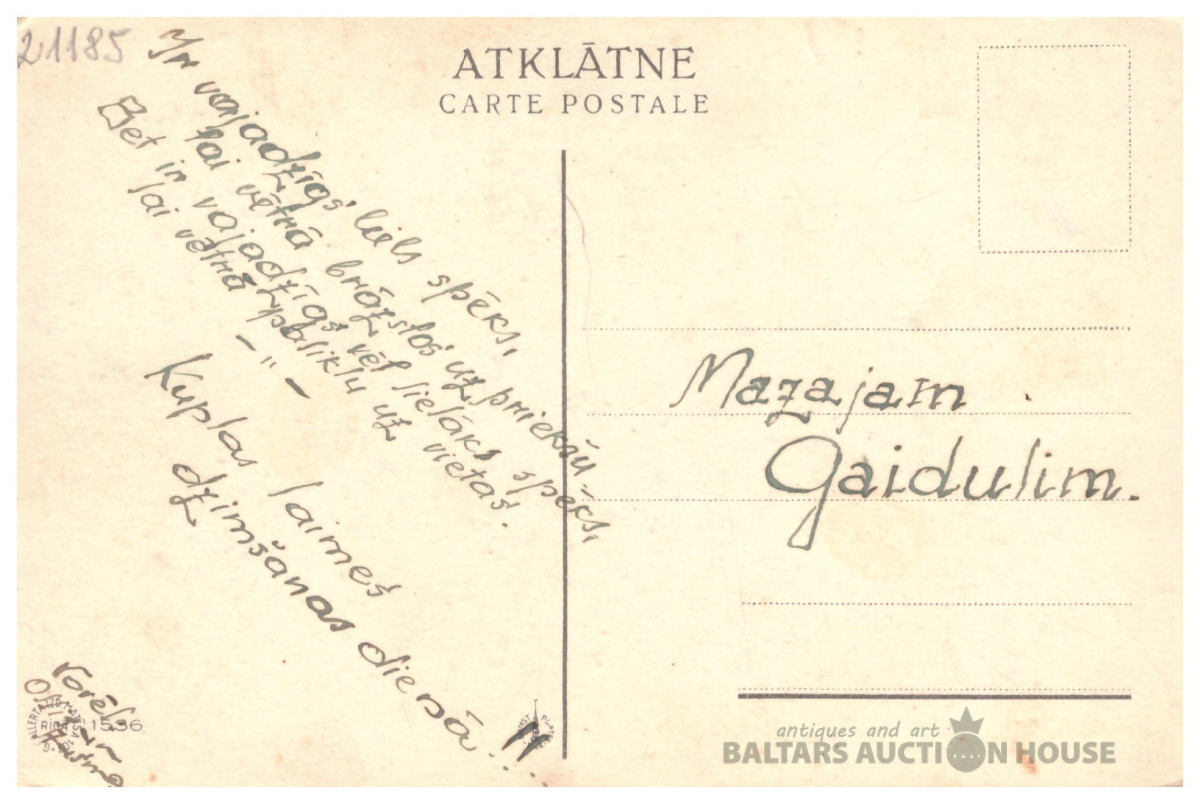 21185
ATKLĀTNE
CARTE POSTALE
Ir vajadzīgs liels spēks,
lai vētrā brāztos uz priekšu -
Bet ir vajadzīgs vēl lielāks spēks,
lai vētrā paliktu uz vietas.
- " -
Kuplas laimes
dzimšanas dienā!!
Mazajam
Gaidulim.
RIGA
1536
antiques and art
BALTARS AUCTION HOUSE